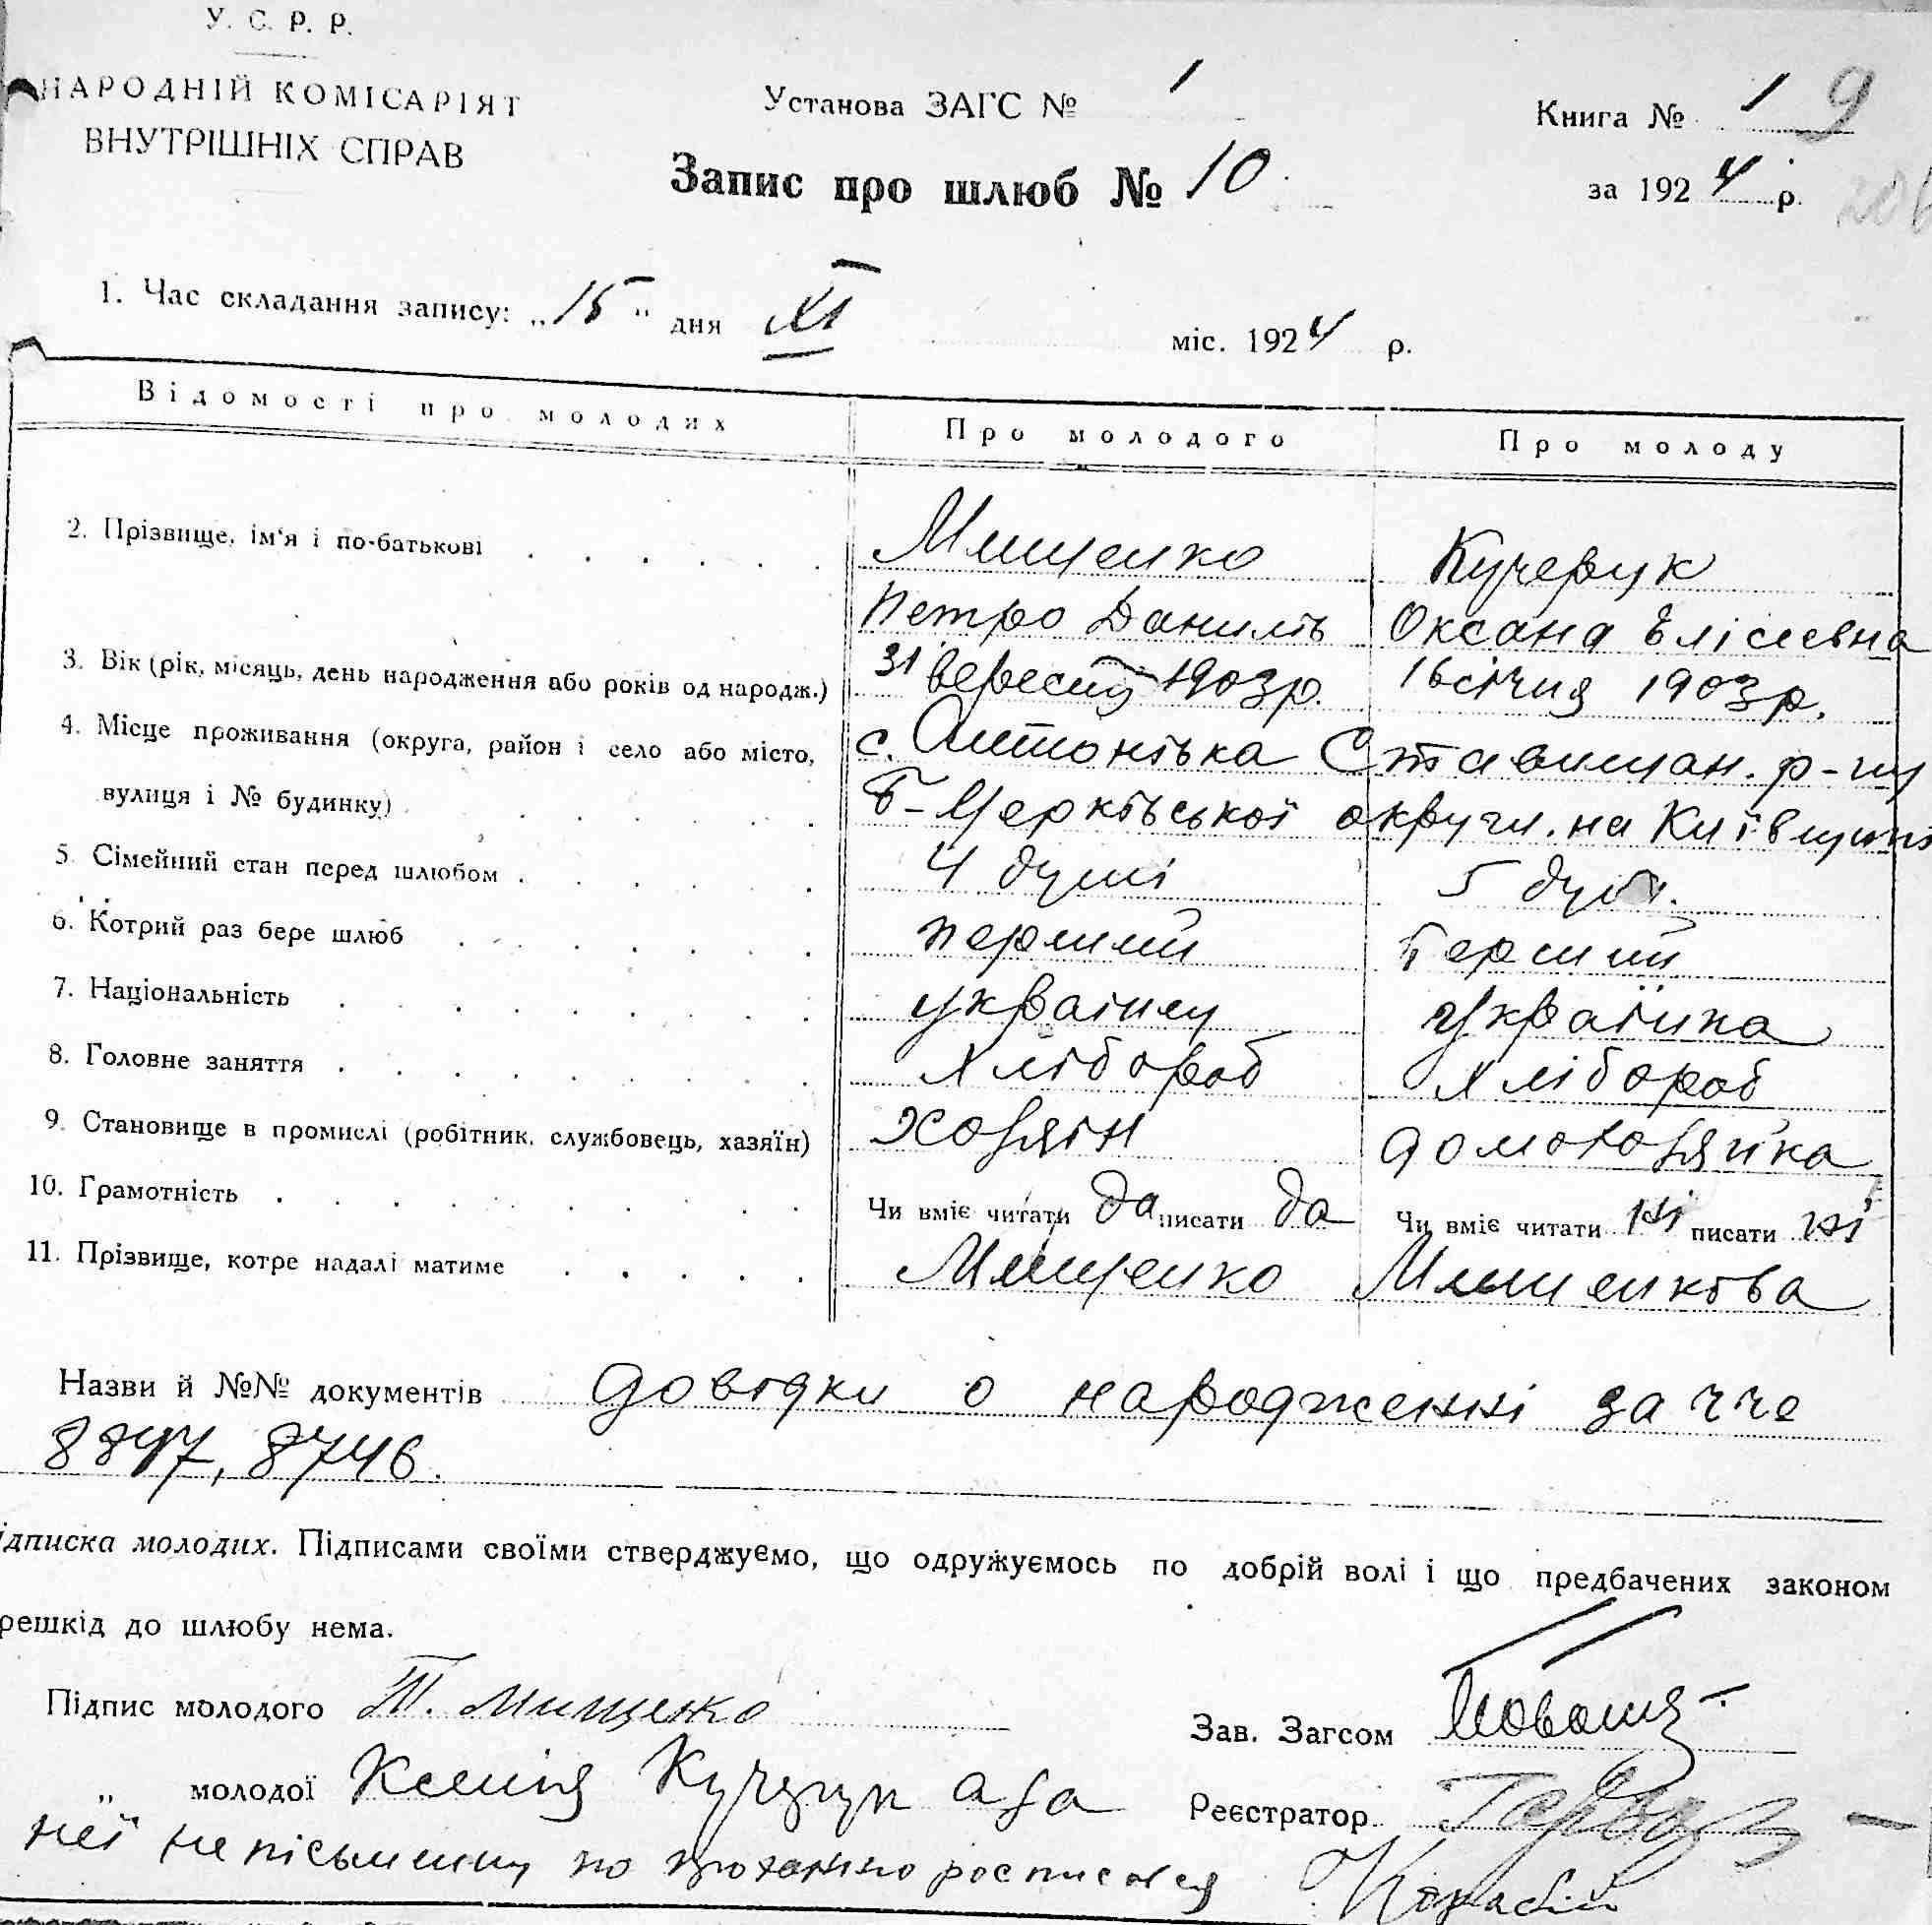 У. С. Р. Р.
НАРОДНІЙ КОМІСАРІЯТ
ВНУТРІШНІХ СПРАВ
Установа ЗАГС № 1
Книга № 1 9
Запис про шлюб № 10
за 1924 р.
1. Час складання запису: „15" дня XI міс. 1924 р.
Відомості про молодих Про молодого Про молоду
2. Прізвище, ім'я і по-батькові Мищенко Кучерук
Петро Данилів Оксана Елісеевна
3. Вік (рік, місяць, день народження або років од народж.) 31 вересня 1903 р. 16 січня 1903 р.
4. Місце проживання (округа, район і село або місто, с. Антонівка Ставищан. р-ну
вулиця і № будинку) Б-Церківської округи. на Київщині
5. Сімейний стан перед шлюбом 4 душі 5 душ.
6. Котрий раз бере шлюб перший Перший
7. Національність українец українка
8. Головне заняття хлібороб хлібороб
9. Становище в промислі (робітник, службовець, хазяїн) хозяін домохозяйка
10. Грамотність Чи вміє читати да писати да Чи вміє читати ні писати ні
11. Прізвище, котре надалі матиме Мищенко Мищенкова
Назви й №№ документів довідки о народженні за ччо
8897, 8746.
ідписка молодих. Підписами своїми стверджуємо, що одружуємось по добрій волі і що предбачених законом
решкід до шлюбу нема.
Підпис молодого П. Мищенко
Зав. Загсом
„ молодої Ксенія Кучерук а за
Реєстратор
неї непісьменну по проханню росписався